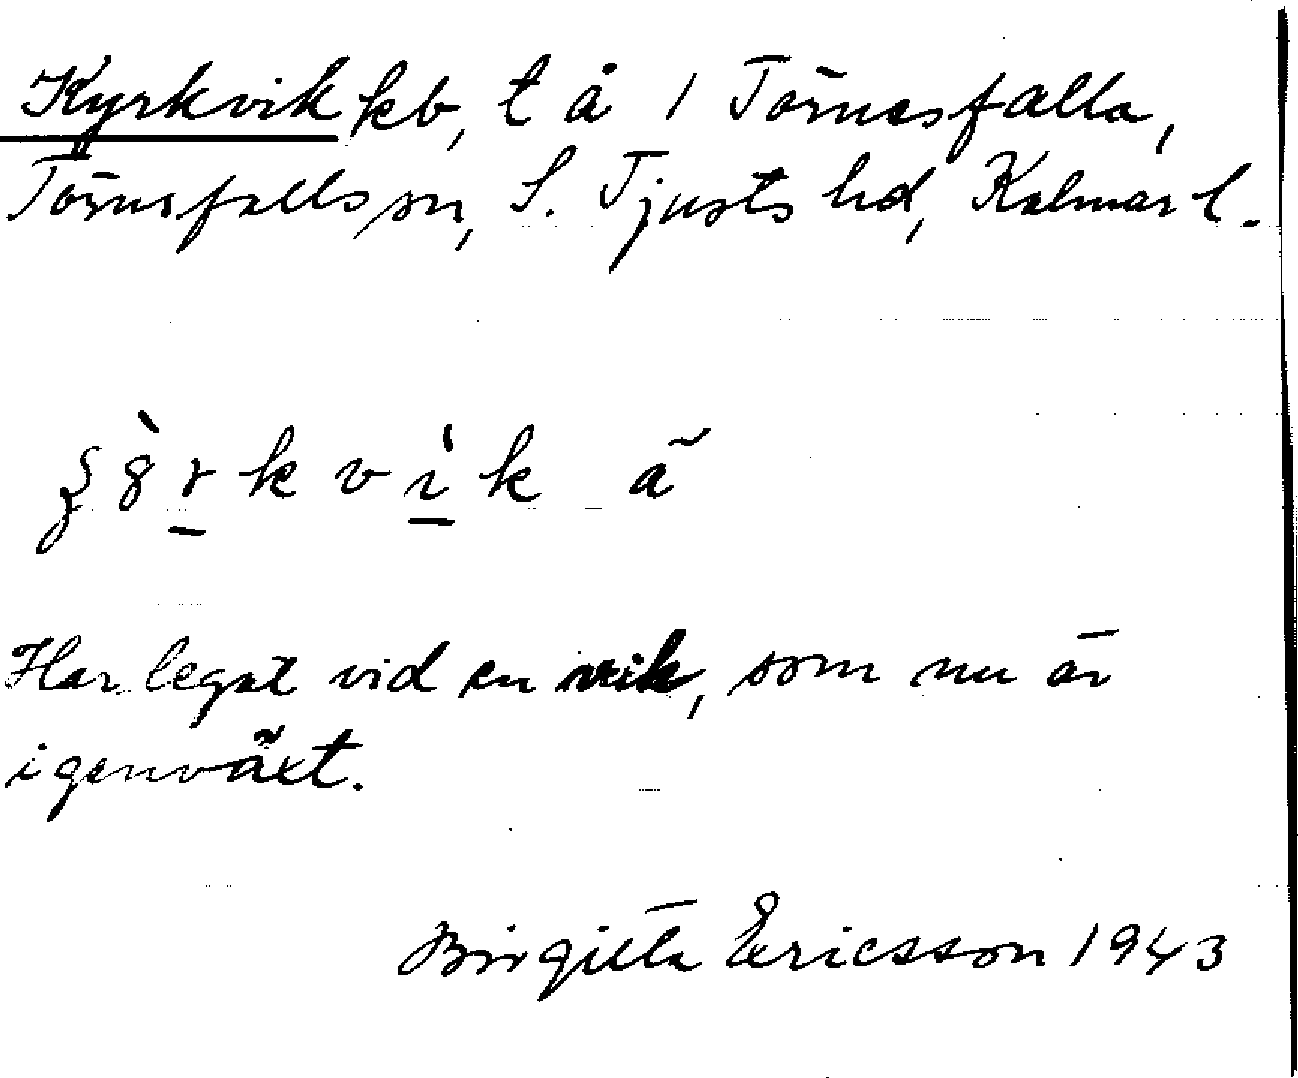 Kyrkvik kb, t å 1 Törnesfalla,
Törnesfalls sn, S. Tjusts hd, Kalmar l.
k v i k ã
Har legat vid en vik, som nu är
igenväxt.
Birgitta Ericsson 1943